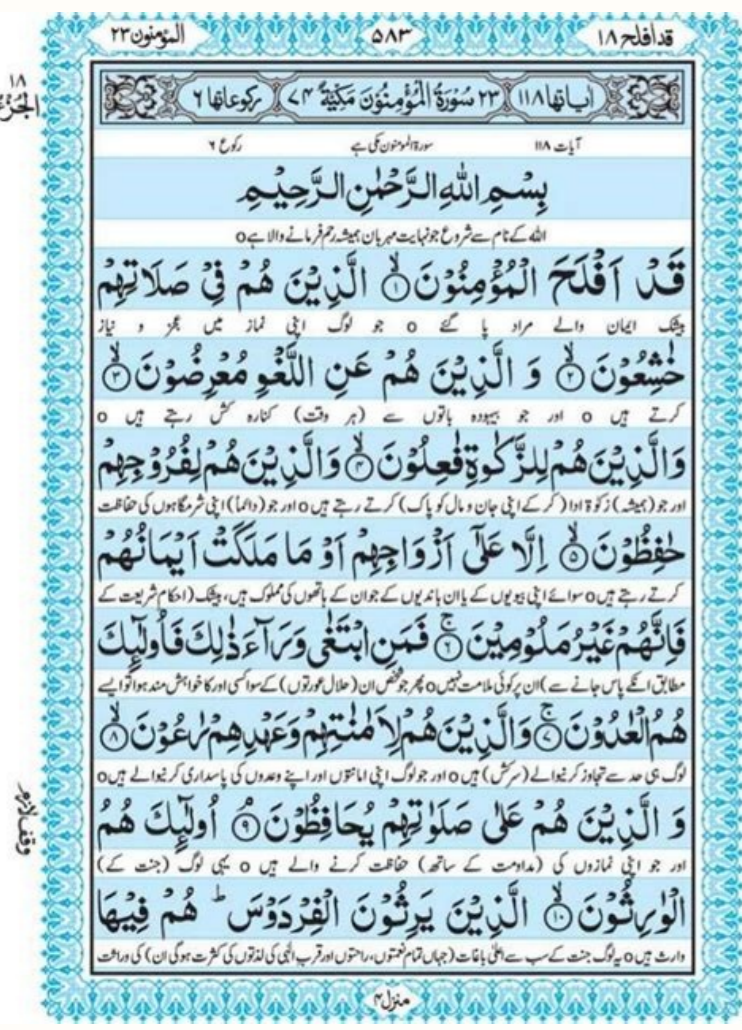 المؤمنون ٢٣
٥٨٣
قد افلح ١٨
١٨
الجزء
اٰیاتها ١١٨ ٢٣ سُوْرَةُ الْمُؤْمِنُوْنَ مَكِّیَّةٌ ٧٤ رکوعاتها ٦
آیات ۱۱۸ سورۃ المومنون مکی ہے رکوع ۶
بِسْمِ اللّٰهِ الرَّحْمٰنِ الرَّحِیْمِ
اللہ کے نام سے شروع جو نہایت مہربان ہمیشہ رحم فرمانے والا ہے o
قَدْ اَفْلَحَ الْمُؤْمِنُوْنَ ۙ﴿۱﴾ الَّذِیْنَ هُمْ فِیْ صَلَاتِهِمْ
بیشک ایمان والے مراد پا گئے o جو لوگ اپنی نماز میں عجز و نیاز
خٰشِعُوْنَ ۙ﴿۲﴾ وَ الَّذِیْنَ هُمْ عَنِ اللَّغْوِ مُعْرِضُوْنَ ۙ﴿۳﴾
کرتے ہیں o اور جو بیہودہ باتوں سے (ہر وقت) کنارہ کش رہتے ہیں o
وَالَّذِیْنَ هُمْ لِلزَّكٰوةِ فٰعِلُوْنَ ۙ﴿۴﴾ وَالَّذِیْنَ هُمْ لِفُرُوْجِهِمْ
اور جو (ہمیشہ) زکوٰۃ ادا (کر کے اپنی جان و مال کو پاک) کرتے رہتے ہیں o اور جو (دائماً) اپنی شرمگاہوں کی حفاظت
حٰفِظُوْنَ ۙ﴿۵﴾ اِلَّا عَلٰۤی اَزْوَاجِهِمْ اَوْ مَا مَلَكَتْ اَیْمَانُهُمْ
کرتے رہتے ہیں o سوائے اپنی بیویوں کے یا ان باندیوں کے جو ان کے ہاتھوں کی مملوک ہیں، بیشک (احکامِ شریعت کے
فَاِنَّهُمْ غَیْرُ مَلُوْمِیْنَ ۚ﴿۶﴾ فَمَنِ ابْتَغٰی وَرَآءَ ذٰلِكَ فَاُولٰٓئِكَ
مطابق انکے پاس جانے سے) ان پر کوئی ملامت نہیں o پھر جو شخص ان (حلال عورتوں) کے سوا کسی اور کا خواہش مند ہوا تو ایسے
هُمُ الْعٰدُوْنَ ۚ﴿۷﴾ وَالَّذِیْنَ هُمْ لِاَمٰنٰتِهِمْ وَعَهْدِهِمْ رٰعُوْنَ ۙ﴿۸﴾
لوگ ہی حد سے تجاوز کرنیوالے (سرکش) ہیں o اور جو لوگ اپنی امانتوں اور اپنے وعدوں کی پاسداری کرنیوالے ہیں o
وَ الَّذِیْنَ هُمْ عَلٰی صَلَوٰتِهِمْ یُحَافِظُوْنَ ۘ﴿۹﴾ اُولٰٓئِكَ هُمُ
اور جو اپنی نمازوں کی (مداومت کے ساتھ) حفاظت کرنے والے ہیں o یہی لوگ (جنت کے)
الْوٰرِثُوْنَ ۙ﴿۱۰﴾ الَّذِیْنَ یَرِثُوْنَ الْفِرْدَوْسَ ؕ هُمْ فِیْهَا
وارث ہیں o یہ لوگ جنت کے سب سے اعلیٰ باغات (جہاں تمام نعمتوں، راحتوں اور قربِ الٰہی کی لذتوں کی کثرت ہوگی ان) کی وراثت
وقف لازم
منزل ٤